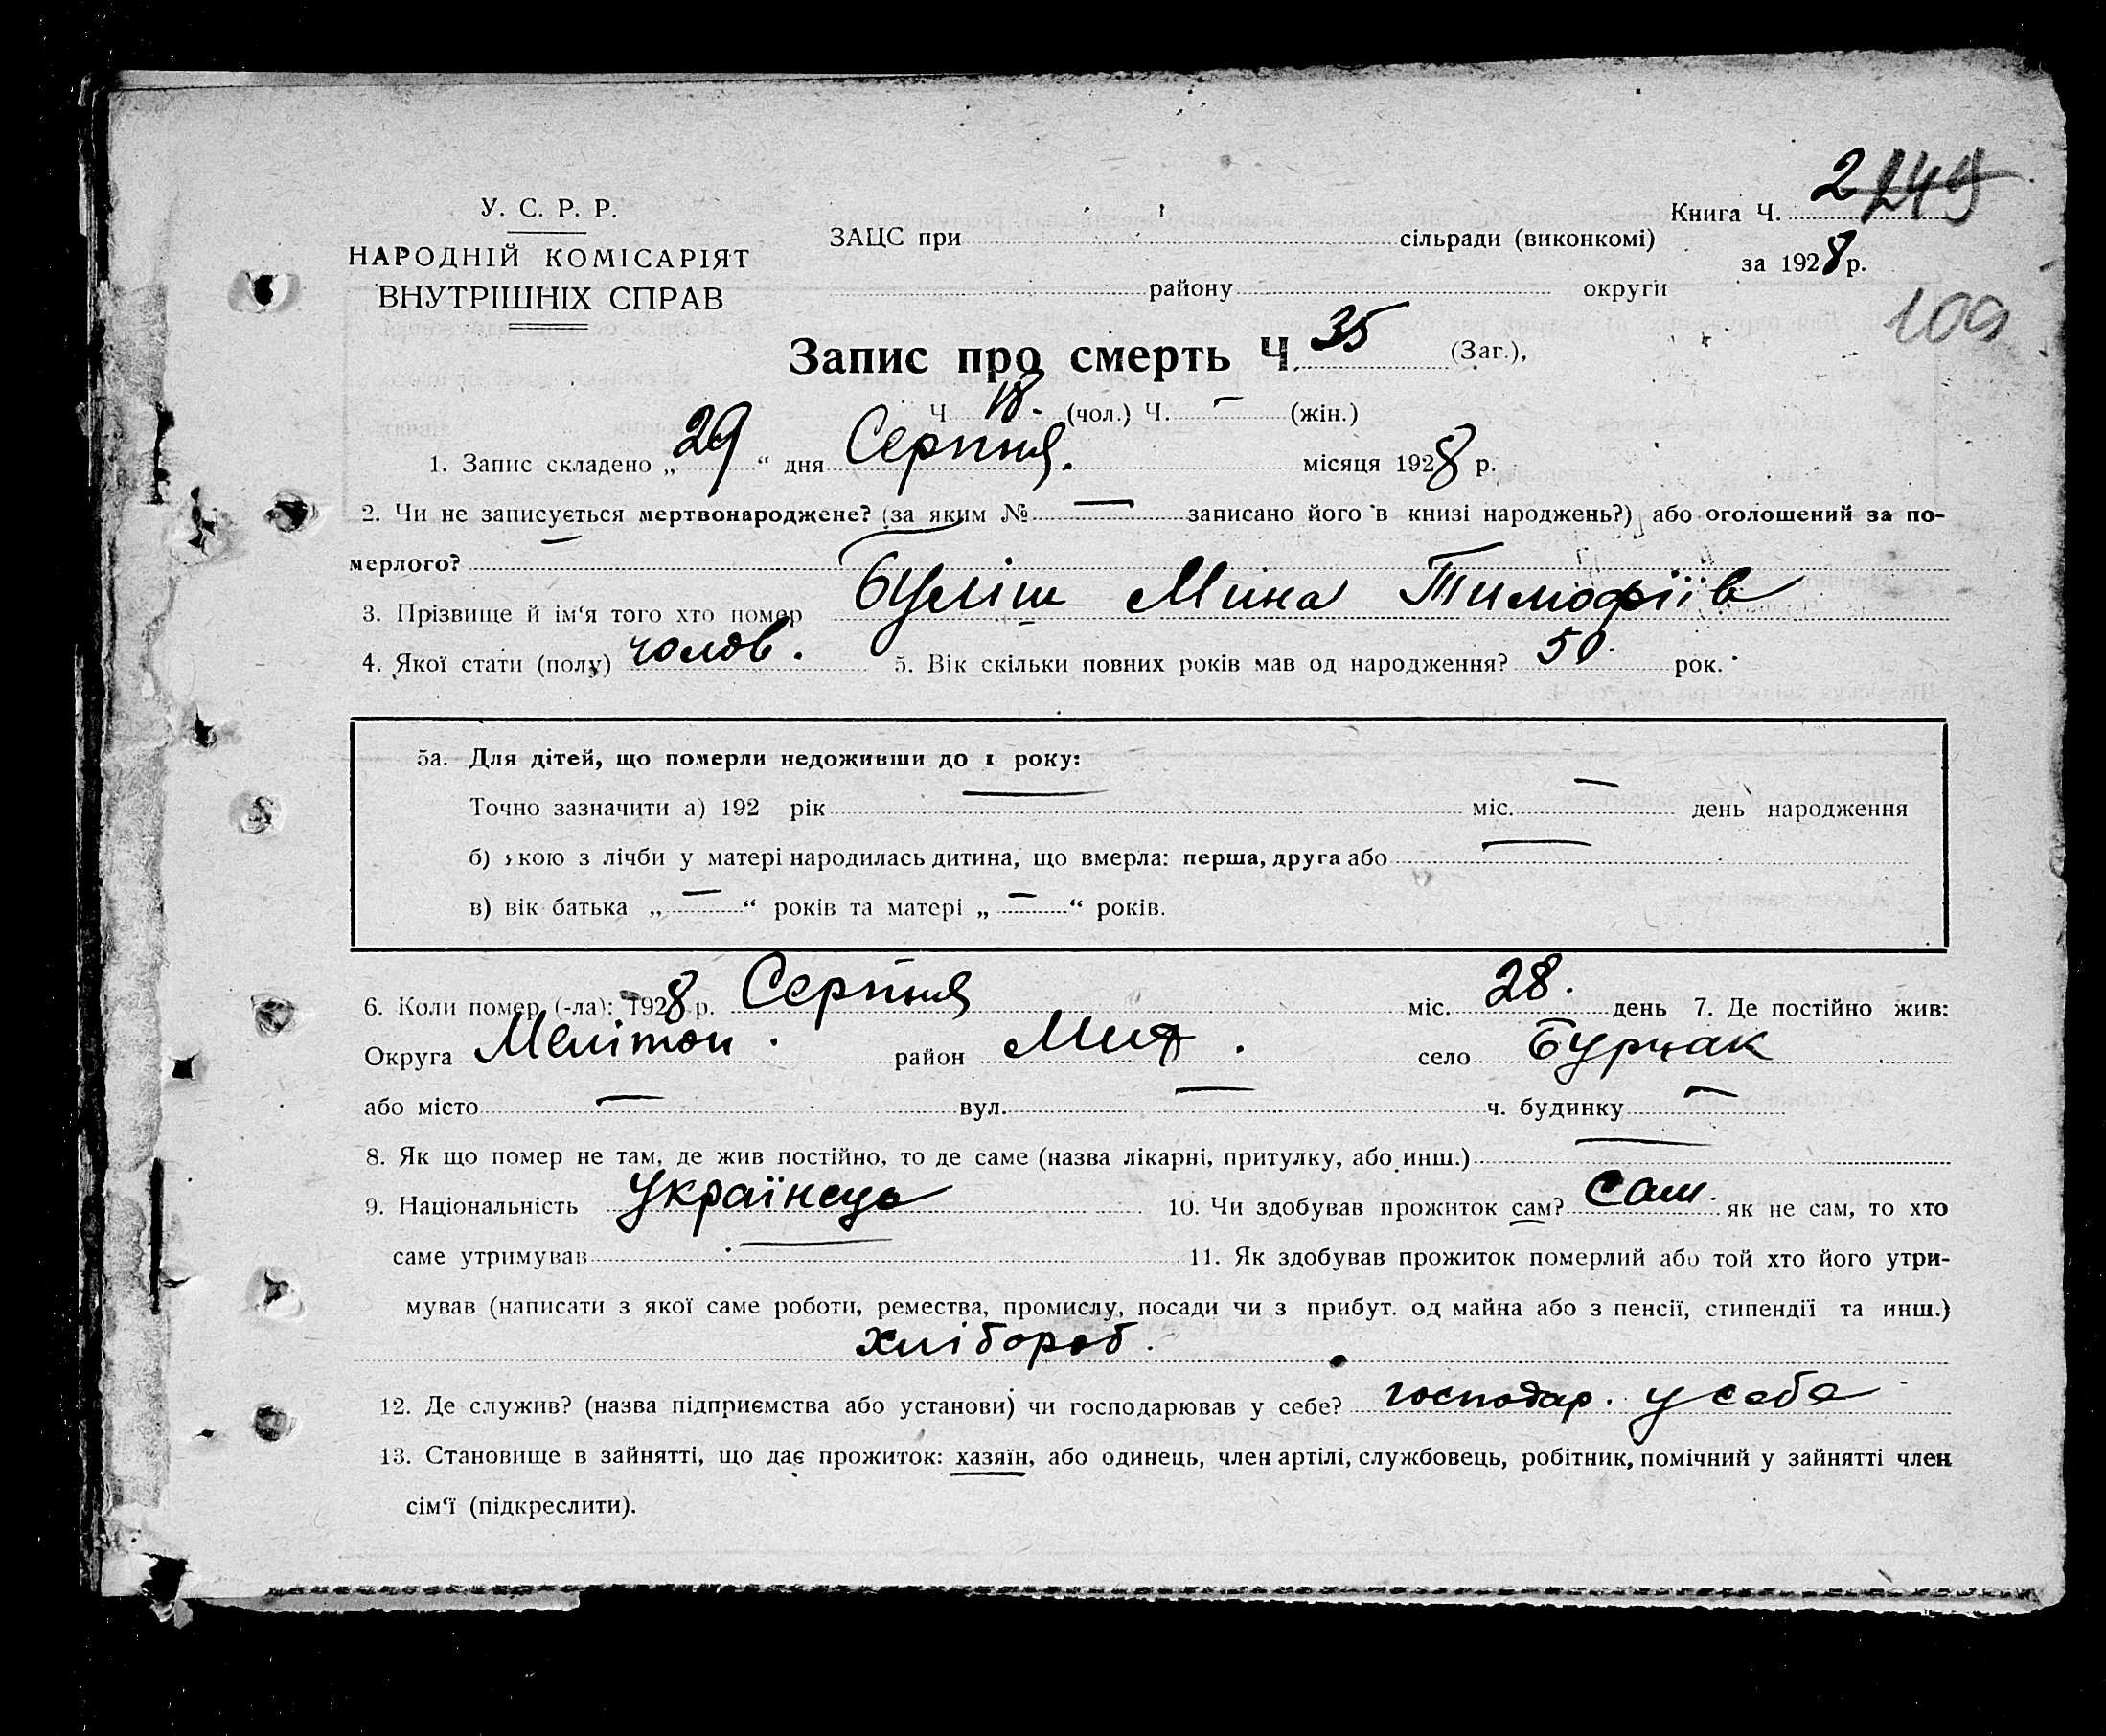 Книга Ч. 2 249
У. С. Р. Р.
НАРОДНІЙ КОМІСАРІЯТ
ВНУТРІШНІХ СПРАВ
ЗАЦС при сільради (виконкомі)
за 1928 р.
району округи
109
Запис про смерть Ч. 35 (Заг.),
Ч 18. (чол.) Ч. — (жін.)
1. Запис складено „ 29 “ дня Серпня. місяця 1928 р.
2. Чи не записується мертвонароджене? (за яким № — записано його в книзі народжень?) або оголошений за по-
мерлого?
3. Прізвище й ім‘я того хто помер Буліш Мина Тимофіїв
4. Якої стати (полу) чолов. 5. Вік скільки повних років мав од народження? 50. рок.
5а. Для дітей, що померли недоживши до 1 року:
Точно зазначити а) 192 рік — міс. — день народження
б) якою з лічби у матері народилась дитина, що вмерла: перша, друга або —
в) вік батька „ — “ років та матері „ — “ років.
6. Коли помер (-ла): 1928 р. Серпня міс. 28. день 7. Де постійно жив:
Округа Мелітоп. район село Бурчак
або місто — вул. — ч. будинку —
8. Як що помер не там, де жив постійно, то де саме (назва лікарні, притулку, або инш.) —
9. Національність Українець 10. Чи здобував прожиток сам? Сам. як не сам, то хто
саме утримував — 11. Як здобував прожиток померлий або той хто його утри-
мував (написати з якої саме роботи, ремества, промислу, посади чи з прибут. од майна або з пенсії, стипендії та инш.)
хлібороб.
12. Де служив? (назва підприємства або установи) чи господарював у себе? господар. у себе
13. Становище в зайнятті, що дає прожиток: хазяїн, або одинець, член артілі, службовець, робітник, помічний у зайнятті член
сім‘ї (підкреслити).